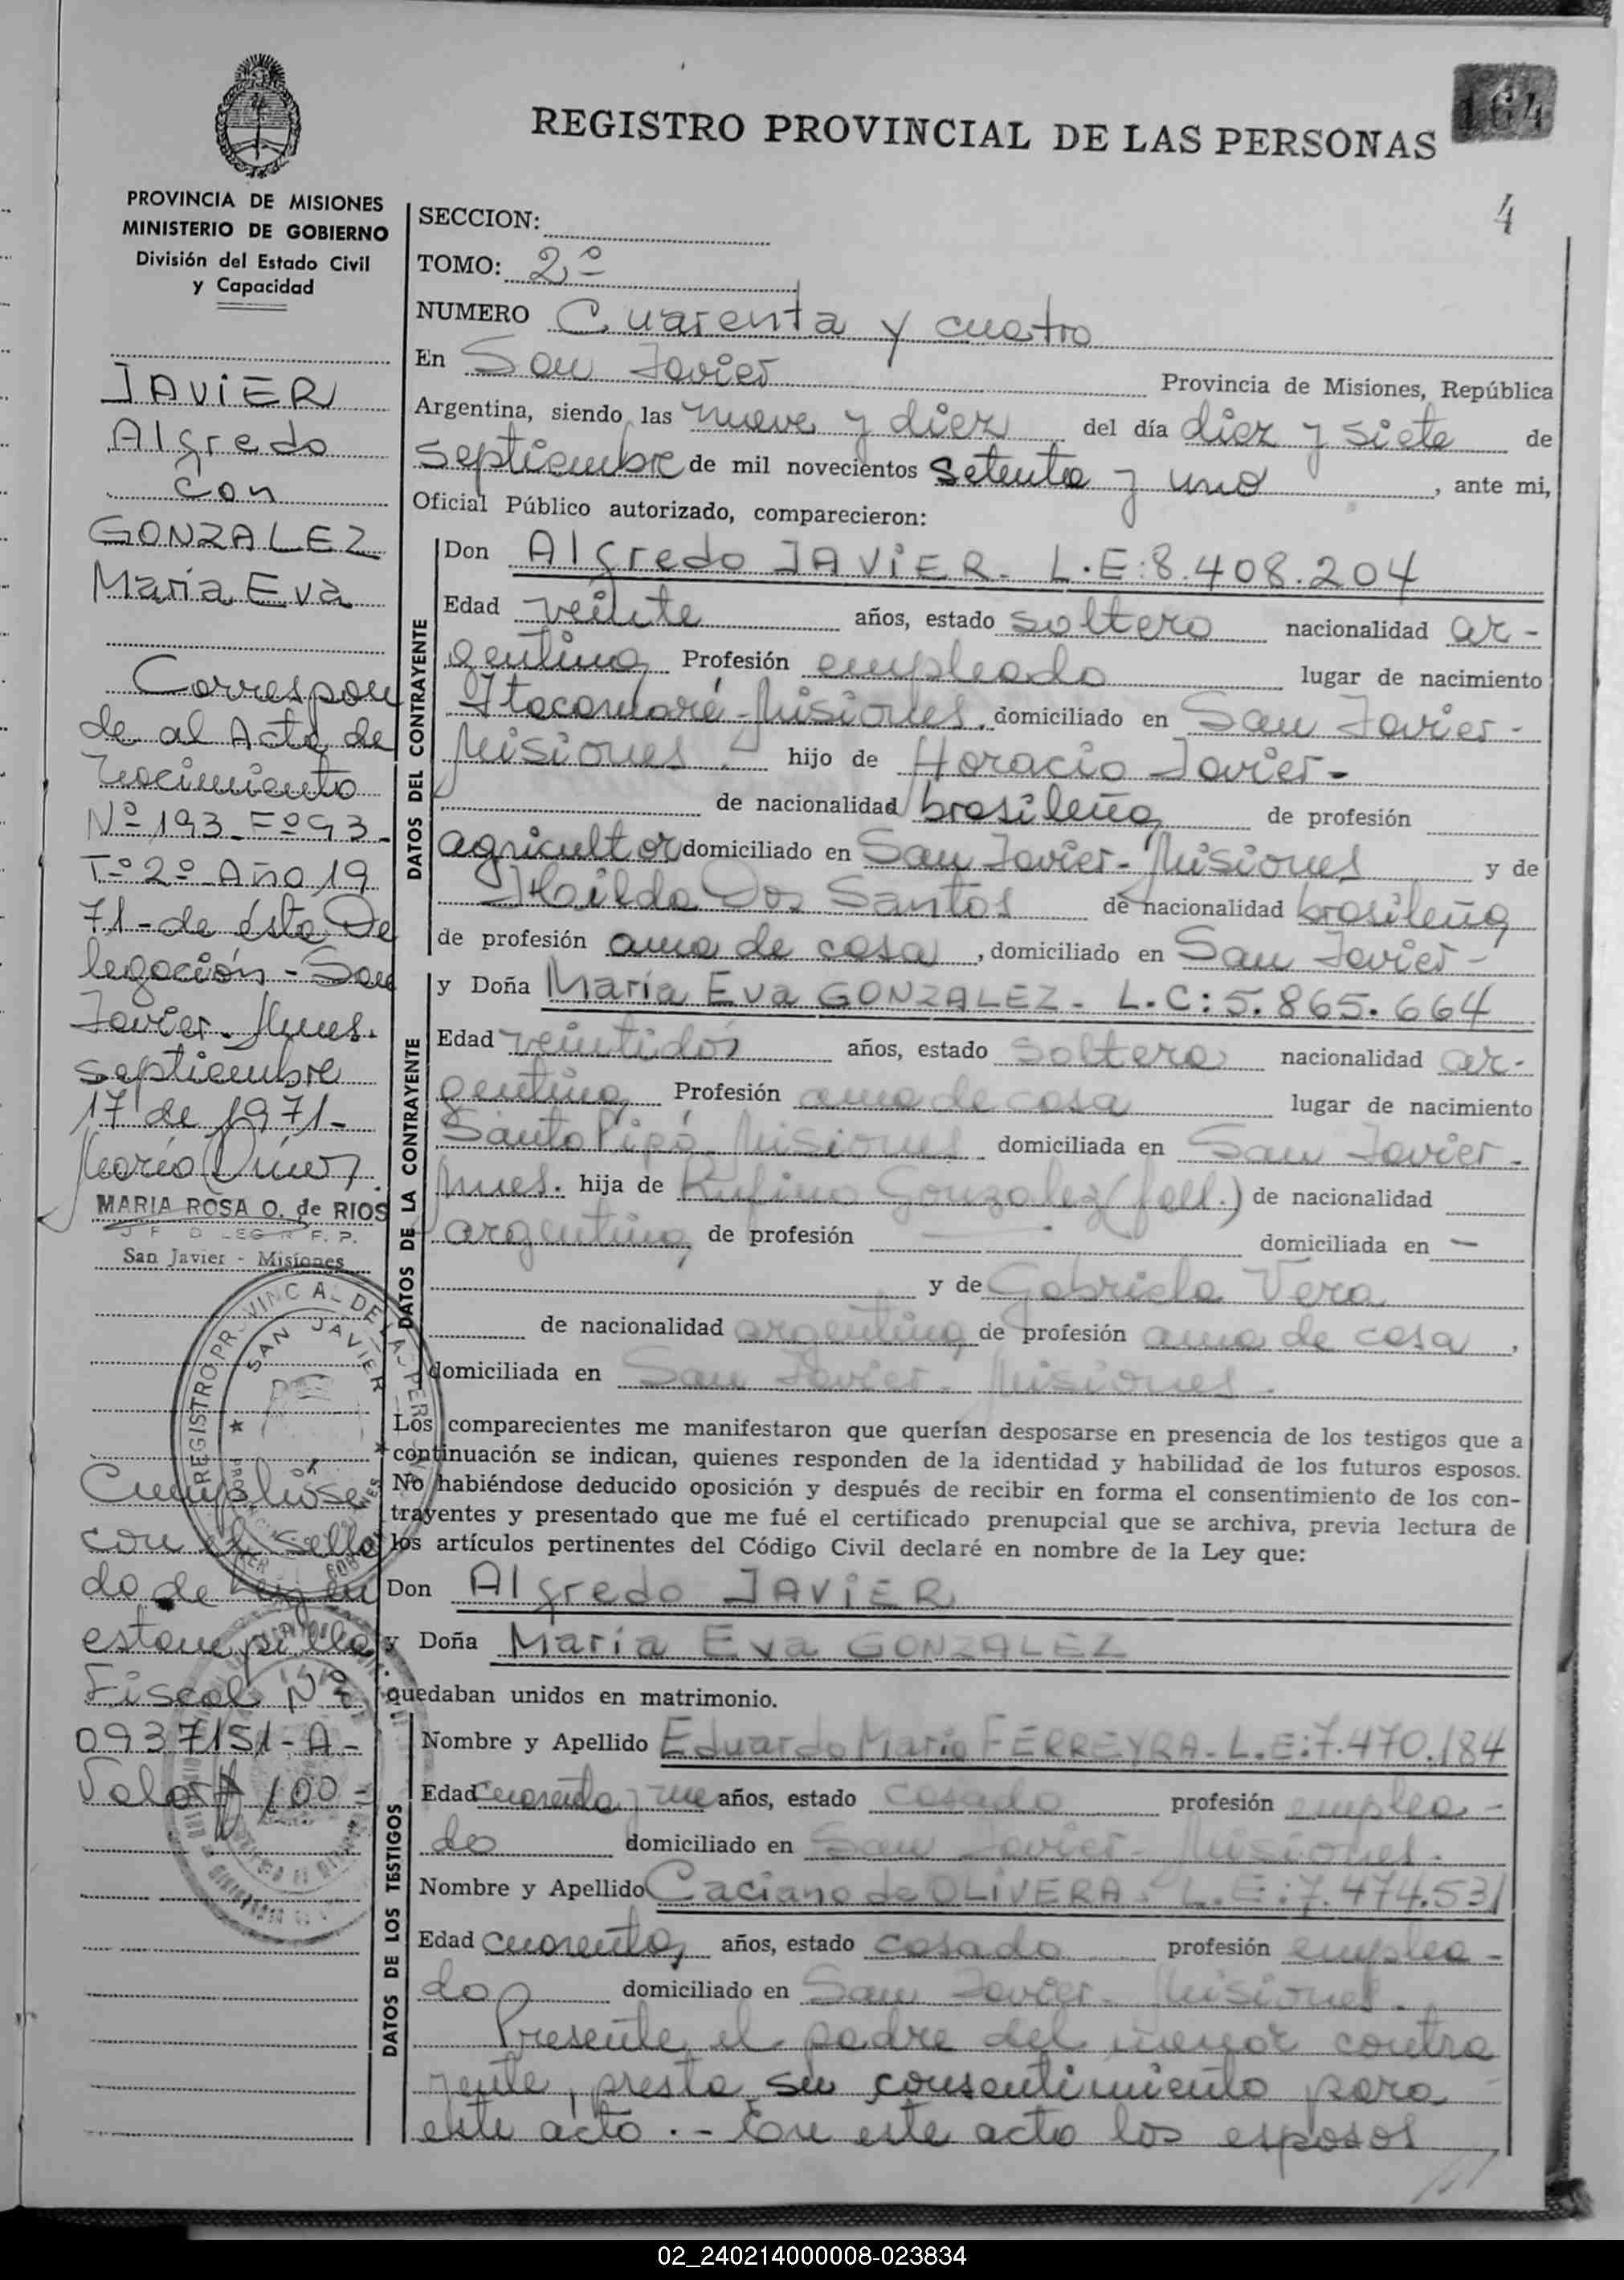 REGISTRO PROVINCIAL DE LAS PERSONAS
164
4
PROVINCIA DE MISIONES
MINISTERIO DE GOBIERNO
División del Estado Civil
y Capacidad
JAVIER
Alfredo
con
GONZALEZ
María Eva
Correspon
de al Acta de
Nacimiento
Nº 193 - Fº 93 -
Tº 2º - Año 19
71 - de ésta De
legación - San
Javier - Mnes.
septiembre
17 de 1971 -
MARIA ROSA O. de RIOS
San Javier - Misiones
REGISTRO PROVINCIAL DE LAS PER
SAN JAVIER
Cumplióse
con el sella
do de Ley en
estampilla
Fiscal Nº
0937151 - A -
Valor $ 100 =
SECCION:
TOMO: 2º
NUMERO Cuarenta y cuatro
En San Javier Provincia de Misiones, República
Argentina, siendo las nueve y diez del día diez y siete de
septiembre de mil novecientos setenta y uno, ante mi,
Oficial Público autorizado, comparecieron:
DATOS DEL CONTRAYENTE
Don Alfredo JAVIER - L.E: 8.408.204
Edad veinte años, estado soltero nacionalidad ar-
gentina Profesión empleado lugar de nacimiento
Itacaruaré - Misiones, domiciliado en San Javier -
Misiones. hijo de Horacio Javier -
de nacionalidad brasileña de profesión
agricultor domiciliado en San Javier - Misiones y de
Ilda Dos Santos de nacionalidad brasileña
de profesión ama de casa, domiciliado en San Javier -
DATOS DE LA CONTRAYENTE
y Doña María Eva GONZALEZ - L.C: 5.865.664
Edad veintidós años, estado soltera nacionalidad ar-
gentina Profesión ama de casa lugar de nacimiento
Santo Pipó Misiones domiciliada en San Javier -
Mnes. hija de Rufino Gonzalez (fall.) de nacionalidad
argentina de profesión — domiciliada en —
y de Gabriela Vera
de nacionalidad argentina de profesión ama de casa,
domiciliada en San Javier - Misiones.
Los comparecientes me manifestaron que querían desposarse en presencia de los testigos que a
continuación se indican, quienes responden de la identidad y habilidad de los futuros esposos.
No habiéndose deducido oposición y después de recibir en forma el consentimiento de los con-
trayentes y presentado que me fué el certificado prenupcial que se archiva, previa lectura de
los artículos pertinentes del Código Civil declaré en nombre de la Ley que:
Don Alfredo JAVIER
y Doña María Eva GONZALEZ
quedaban unidos en matrimonio.
DATOS DE LOS TESTIGOS
Nombre y Apellido Eduardo Mario FERREYRA - L.E: 7.470.184
Edad cuarenta y años, estado casado profesión emplea-
do domiciliado en San Javier - Misiones.
Nombre y Apellido Caciano de OLIVERA - L.E: 7.474.531
Edad cuarenta años, estado casado profesión emplea-
do domiciliado en San Javier - Misiones.
Presente el padre del menor contra
yente, presta su consentimiento para
este acto. - En este acto los esposos
02_240214000008-023834